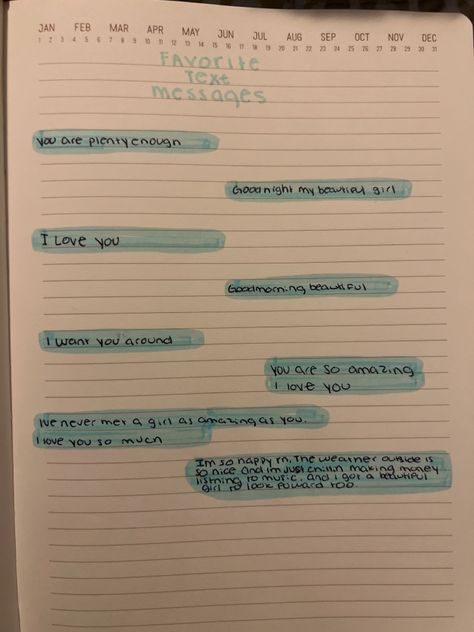 JAN FEB MAR APR MAY JUN JUL AUG SEP OCT NOV DEC
1 2 3 4 5 6 7 8 9 10 11 12 13 14 15 16 17 18 19 20 21 22 23 24 25 26 27 28 29 30 31
FAVORITE
TEXT
messages
you are plenty enough
Goodnight my beautiful girl
I Love you
Goodmorning, beautiful
I want you around
you are so amazing
I love you
Ive never met a girl as amazing as you.
I love you so much
Im so happy rn. The weather outside is
so nice and im just chillin making money
listning to music. and i got a beautiful
girl to look foward too.